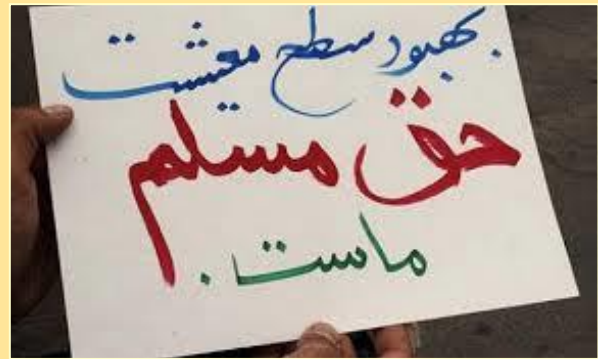 بهبود سطح معیشت
حق مسلم
ماست.